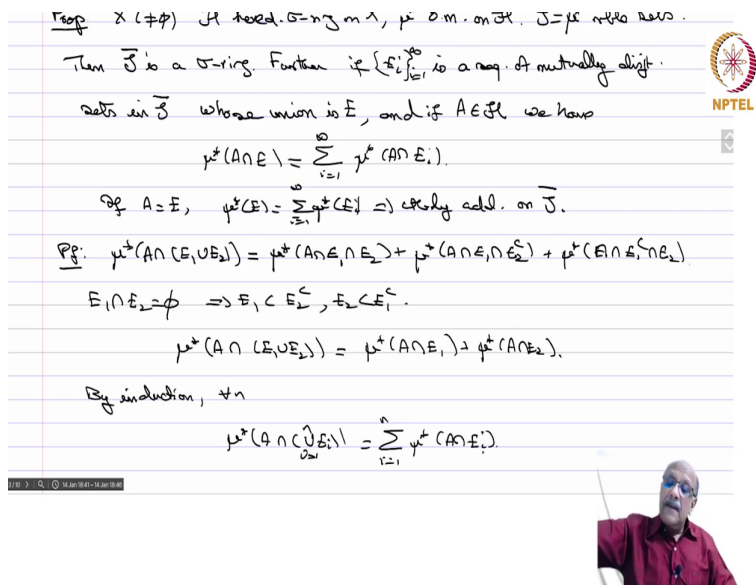 Prop X (≠φ) H hered. σ-ring on X, μ* o.m. on H. S̄ = μ* mble sets.
Then S̄ is a σ-ring. Further if {E_i}_{i=1}^∞ is a seq. of mutually disjt.
NPTEL
sets in S̄ whose union is E, and if A∈H we have
μ*(A∩E) = ∑_{i=1}^∞ μ*(A∩E_i).
If A=E, μ*(E) = ∑_{i=1}^∞ μ*(E_i) ⇒ ctbly add. on S̄.
Pf: μ*(A∩(E_1∪E_2)) = μ*(A∩E_1∩E_2) + μ*(A∩E_1∩E_2^c) + μ*(A∩E_1^c∩E_2)
E_1∩E_2=φ ⇒ E_1 ⊂ E_2^c, E_2 ⊂ E_1^c.
μ*(A∩(E_1∪E_2)) = μ*(A∩E_1) + μ*(A∩E_2).
By induction, ∀n
μ*(A∩(∪_{i=1}^n E_i)) = ∑_{i=1}^n μ*(A∩E_i).
3/10 14 Jan 18:41 – 14 Jan 18:46